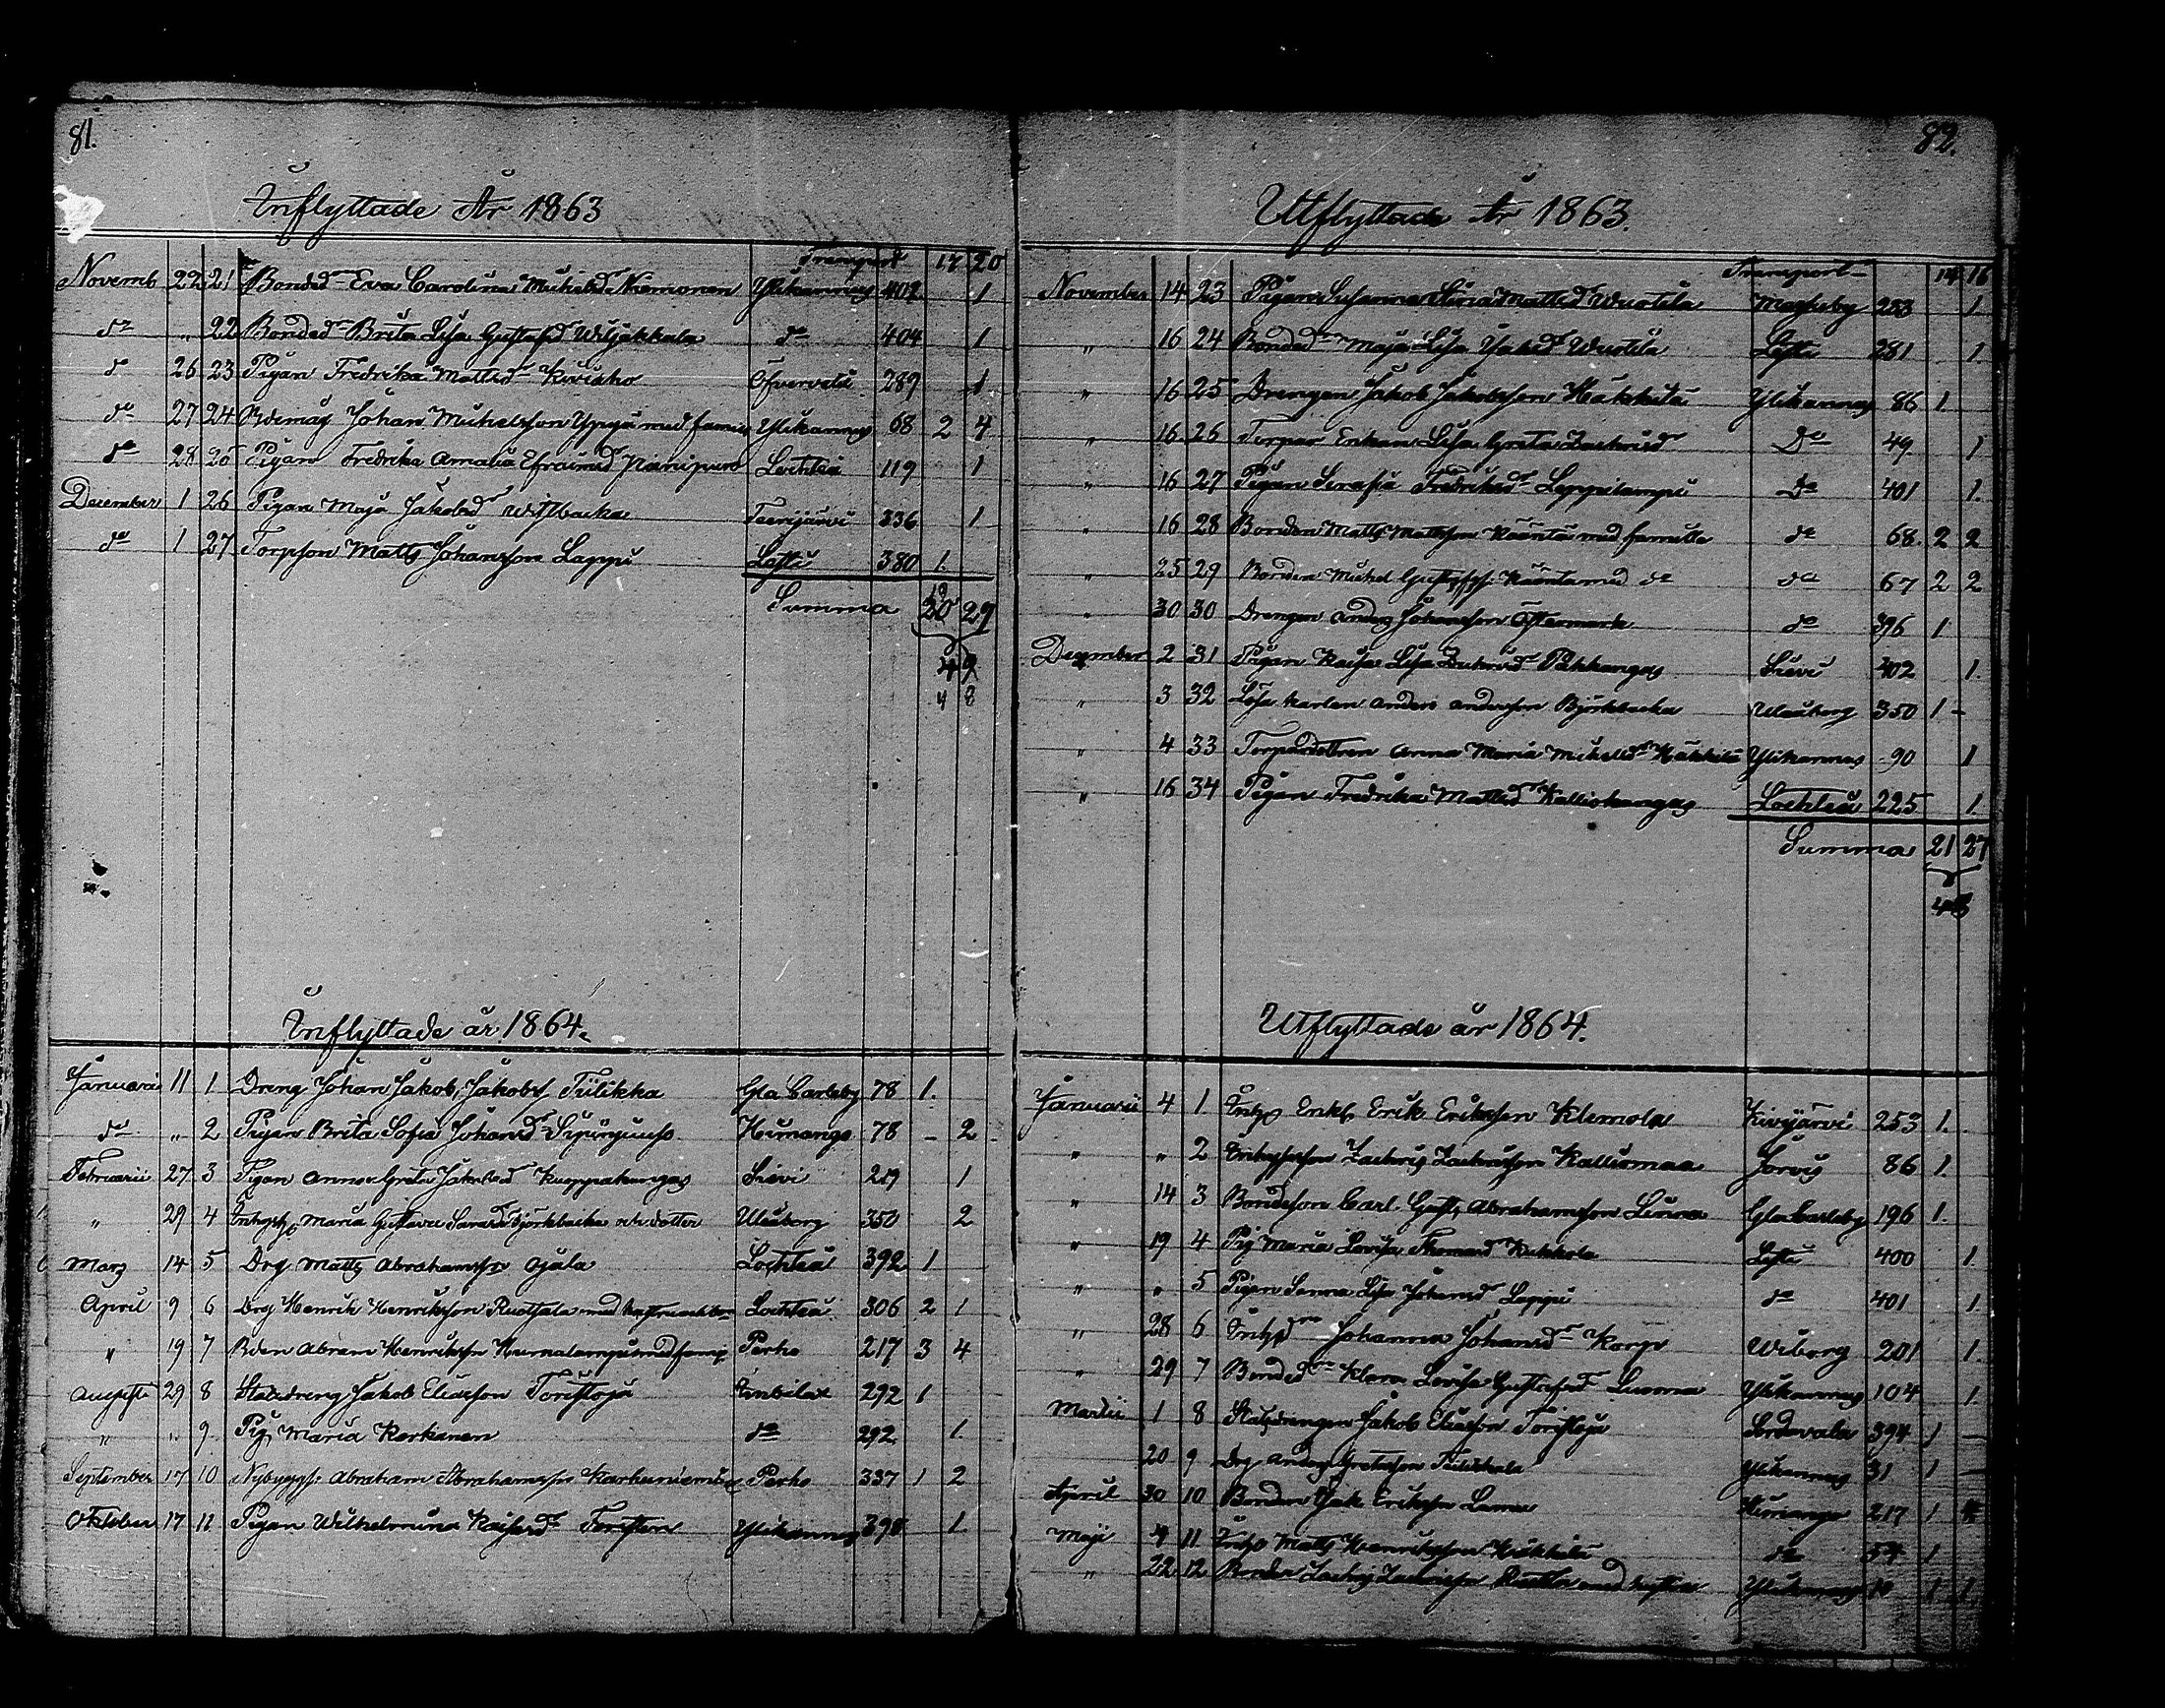 81.
Inflyttade År 1863
Transport 17 20
Novemb 22 21 Bonded Eva Carolina Michelsd Niemonen Ylikannus 402 1
do " 22 Bonded Brita Lisa Gustafsd Wiljakkala do 404 1
do 26 23 Pigan Fredrika Mattsd Kiviaho Ofvervetil 289 1
do 27 24 Johan Michelsson Yppyä med familj Ylikannus 68 2 4
do 28 25 Pigan Fredrika Amalia Efraimsd Lochteå 119 1
December 1 26 Pigan Maja Jakobsd Wistbacka Terijärvi 336 1
do 1 27 Torpson Matts Johansson Lappi Lesti 380 1.
Summa 20 29
49
48
Inflyttade år 1864.
Januari 11 1. Dreng Johan Jakob Jakobss Tiilikka Gla Carleby 78 1.
do " 2 Pigan Brita Sofia Johansd Himango 78 - 2
Februarii 27 3 Pigan Anna Greta Jakobsd Kuppakangas Sievi 219 1
" 29 4 Maria Gustava Björkbacka och dotter Uleåborg 350 2
Mars 14 5 Drg Matts Abrahamsson Ojala Lochteå 392 1
April 9 6 Drg Henrik Henriksson Ruotsala med Lochteå 306 2 1
" 19 7 Bden Abram Henriksson med familj Perho 217 3 4
Augusti 29 8 Jakob Eliasson Toristoja Imbilax 292 1
" " 9. Pig Maria Kerkänen do 292 1.
September 17 10 Nybygg Abraham Abrahamsson Karhuniemi Perho 337 1 2
Oktober 17 11 Pigan Wilhelmina Kaisasd Ylikannus 398 1.
82.
Utflyttade År 1863.
Transport 14 16
November 14 23 Pigan Susanna Stina Mattsd Wuotila Maxheby 283 1.
" 16 24 Bonded Maja Lisa Isaksd Wuotila Lesti 281 1
" 16 25 Drengen Jakob Jakobsson Häkkilä Ylikannus 86 1.
" 16 26 Torpar Enkan Lisa Greta Zachrisd Do 49. 1
" 16 27 Pigan Serafia Fredriksd Leppilampi Do 401 1.
" 16 28 Bonden Matts Mattsson Kääntä med familie do 68. 2 2
" 25 29 Bonden Michel Gustafss. Kääntä med do do 67 2 2
" 30 30 Drengen Anders Johansson Östermark do 396 1
December 2 31 Pigan Kaisa Lisa Zachrisd Pakkangas Sievi 402 1.
" 3 32 Lösa Karlen Anders Andersson Björkbacka Uleåborg 350 1 -
" 4 33 Torparedottren Anna Maria Michelsd Häkkilä Ylikannus 90 1
" 16 34 Pigan Fredrika Mattsd Kalliokangas Lochteå 225 1.
Summa 21 27
48
Utflyttade år 1864.
Januarii 4 1. Enkl Erik Eriksson Klemola Kivijärvi 253 1.
" " 2 Zachris Zachrisson Kalliomaa Jorvis 86 1.
" 14 3 Bondeson Carl Gust Abrahamsson Linna Gla Carleby 196 1.
" 19 4 Pig Maria Lovisa Thomasd Kukkola Lesti 400 1.
" " 5 Pigan Sanna Lisa Johansd Lappi do 401 1.
" 28 6 Johanna Johansd Korpi Wiborg 201 1.
" 29 7 Bonded Klara Lovisa Gustafsd Luoma Ylikannus 104 1.
Martii 1 8 Jakob Eliasson Toristoja Sordavala 394 1 -
20 9 Drg Anders Gretasson Tiilikkala Ylikannus 31 1 -
April 30 10 Bonden Isak Eriksson Lama Himango 217 1
Maji 4 11 Matts Henriksson Häkkilä do 54 1
" 22 12 Bonden Zachris Zachrisson med hustru Ylikannus 10 1 1